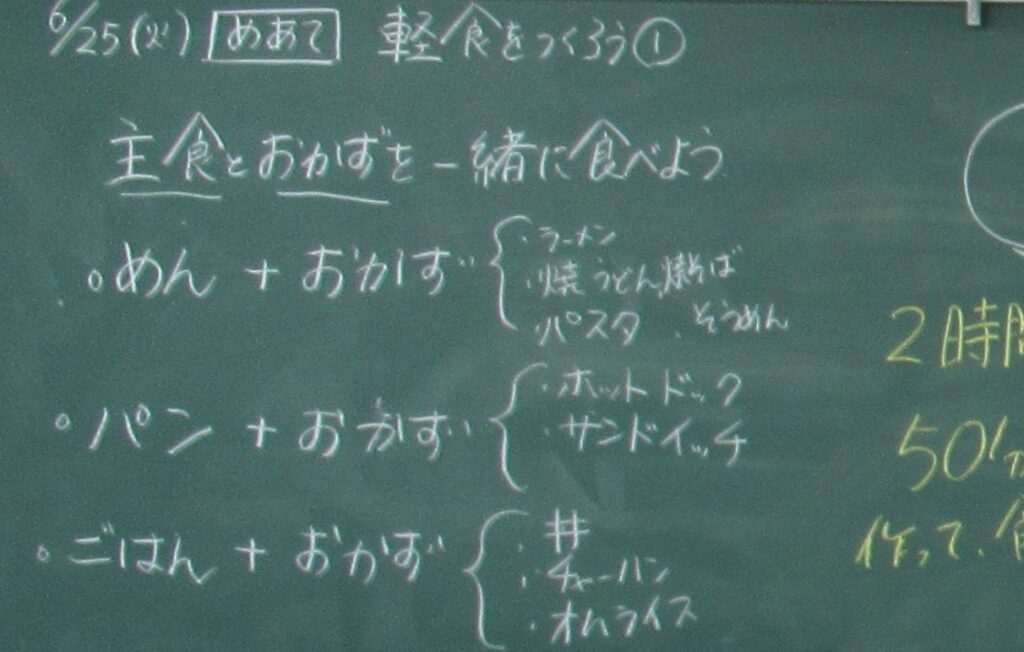 6/25(火) めあて 軽食をつくろう①
主食とおかずを一緒に食べよう
。めん + おかず
・ラーメン
・焼うどん,焼そば
・パスタ ・そうめん
。パン + おかず
・ホットドック
・サンドイッチ
。ごはん + おかず
・丼
・チャーハン
・オムライス
2時間
50分
作って、食